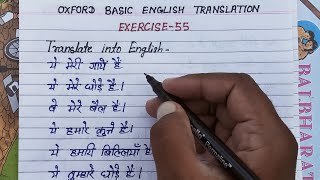 OXFORD BASIC ENGLISH TRANSLATION
EXERCISE-55
Translate into English-
ये मेरी गायें हैं
ये मेरे घोड़े हैं।
वे मेरे बैल हैं।
ये हमारे कुत्ते हैं
ये हमारी बिल्लियाँ हैं
ये तुम्हारे घोड़े हैं।
BALBHARAT